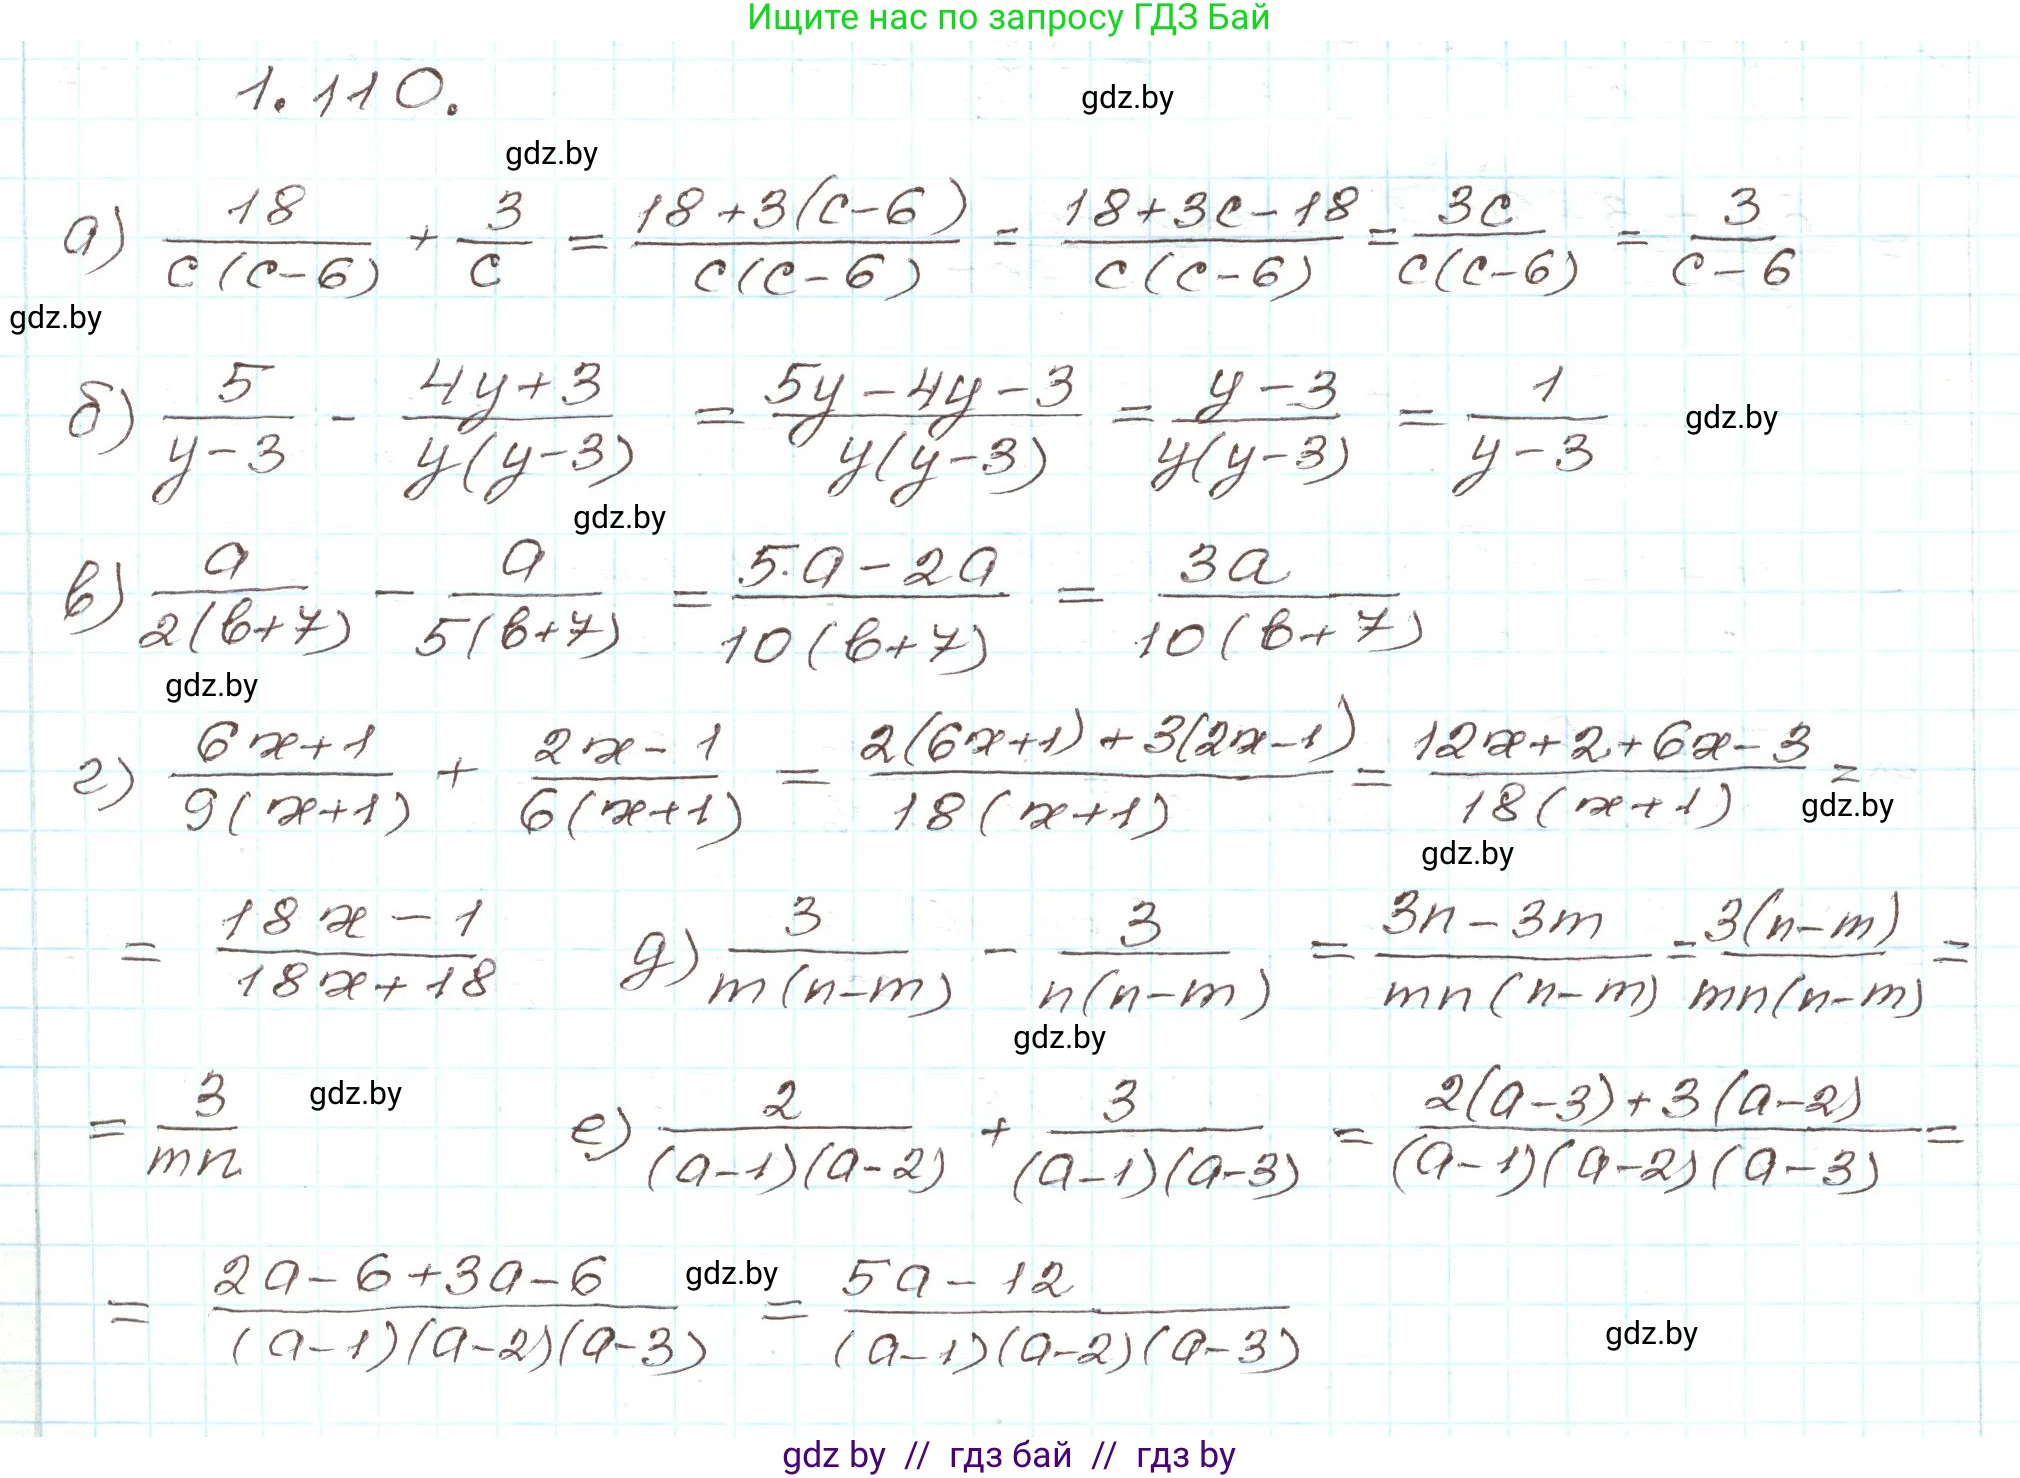 Ищите нас по запросу ГДЗ Бай
1.110.
gdz.by
gdz.by
а) 18/(c(c-6)) + 3/c = (18+3(c-6))/(c(c-6)) = (18+3c-18)/(c(c-6)) = 3c/(c(c-6)) = 3/(c-6)
gdz.by
б) 5/(y-3) - (4y+3)/(y(y-3)) = (5y-4y-3)/(y(y-3)) = (y-3)/(y(y-3)) = 1/(y-3)
gdz.by
gdz.by
в) a/(2(b+7)) - a/(5(b+7)) = (5·a-2a)/(10(b+7)) = 3a/(10(b+7))
gdz.by
г) (6x+1)/(9(x+1)) + (2x-1)/(6(x+1)) = (2(6x+1)+3(2x-1))/(18(x+1)) = (12x+2+6x-3)/(18(x+1)) =
gdz.by
gdz.by
= (18x-1)/(18x+18) д) 3/(m(n-m)) - 3/(n(n-m)) = (3n-3m)/(mn(n-m)) = 3(n-m)/(mn(n-m)) =
gdz.by
= 3/(mn) gdz.by е) 2/((a-1)(a-2)) + 3/((a-1)(a-3)) = (2(a-3)+3(a-2))/((a-1)(a-2)(a-3)) =
= (2a-6+3a-6)/((a-1)(a-2)(a-3)) gdz.by = (5a-12)/((a-1)(a-2)(a-3))
gdz.by
gdz by // гдз бай // гдз by